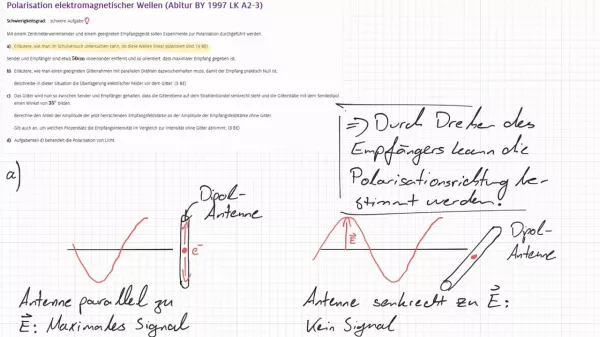 Polarisation elektromagnetischer Wellen (Abitur BY 1997 LK A2-3)
Schwierigkeitsgrad: schwere Aufgabe
Mit einem Zentimeterwellensender und einem geeigneten Empfangsgerät sollen Experimente zur Polarisation durchgeführt werden.
a) Erläutere, wie man im Schulversuch untersuchen kann, ob diese Wellen linear polarisiert sind. (4 BE)
Sender und Empfänger sind etwa 50cm voneinander entfernt und so orientiert, dass maximaler Empfang gegeben ist.
b) Erläutere, wie man einen geeigneten Gitterrahmen mit parallelen Drähten dazwischenhalten muss, damit der Empfang praktisch Null ist.
Beschreibe in dieser Situation die Überlagerung elektrischer Felder vor dem Gitter. (5 BE)
c) Das Gitter wird nun so zwischen Sender und Empfänger gehalten, dass die Gitterebene auf dem Strahlenbündel senkrecht steht und die Gitterstäbe mit dem Sendedipol
einen Winkel von 35° bilden.
Berechne den Anteil der Amplitude der jetzt herrschenden Empfangsfeldstärke an der Amplitude der Empfangsfeldstärke ohne Gitter.
Gib auch an, um welchen Prozentsatz die Empfangsintensität im Vergleich zur Intensität ohne Gitter abnimmt. (8 BE)
d) Aufgabenteil d) behandelt die Polarisation von Licht.
=> Durch Drehen des
Empfängers kann die
Polarisationsrichtung be-
stimmt werden.
a)
Dipol-
Antenne
e⁻
Antenne parallel zu
E⃗: Maximales Signal
E⃗
Dipol-
Antenne
Antenne senkrecht zu E⃗:
Kein Signal